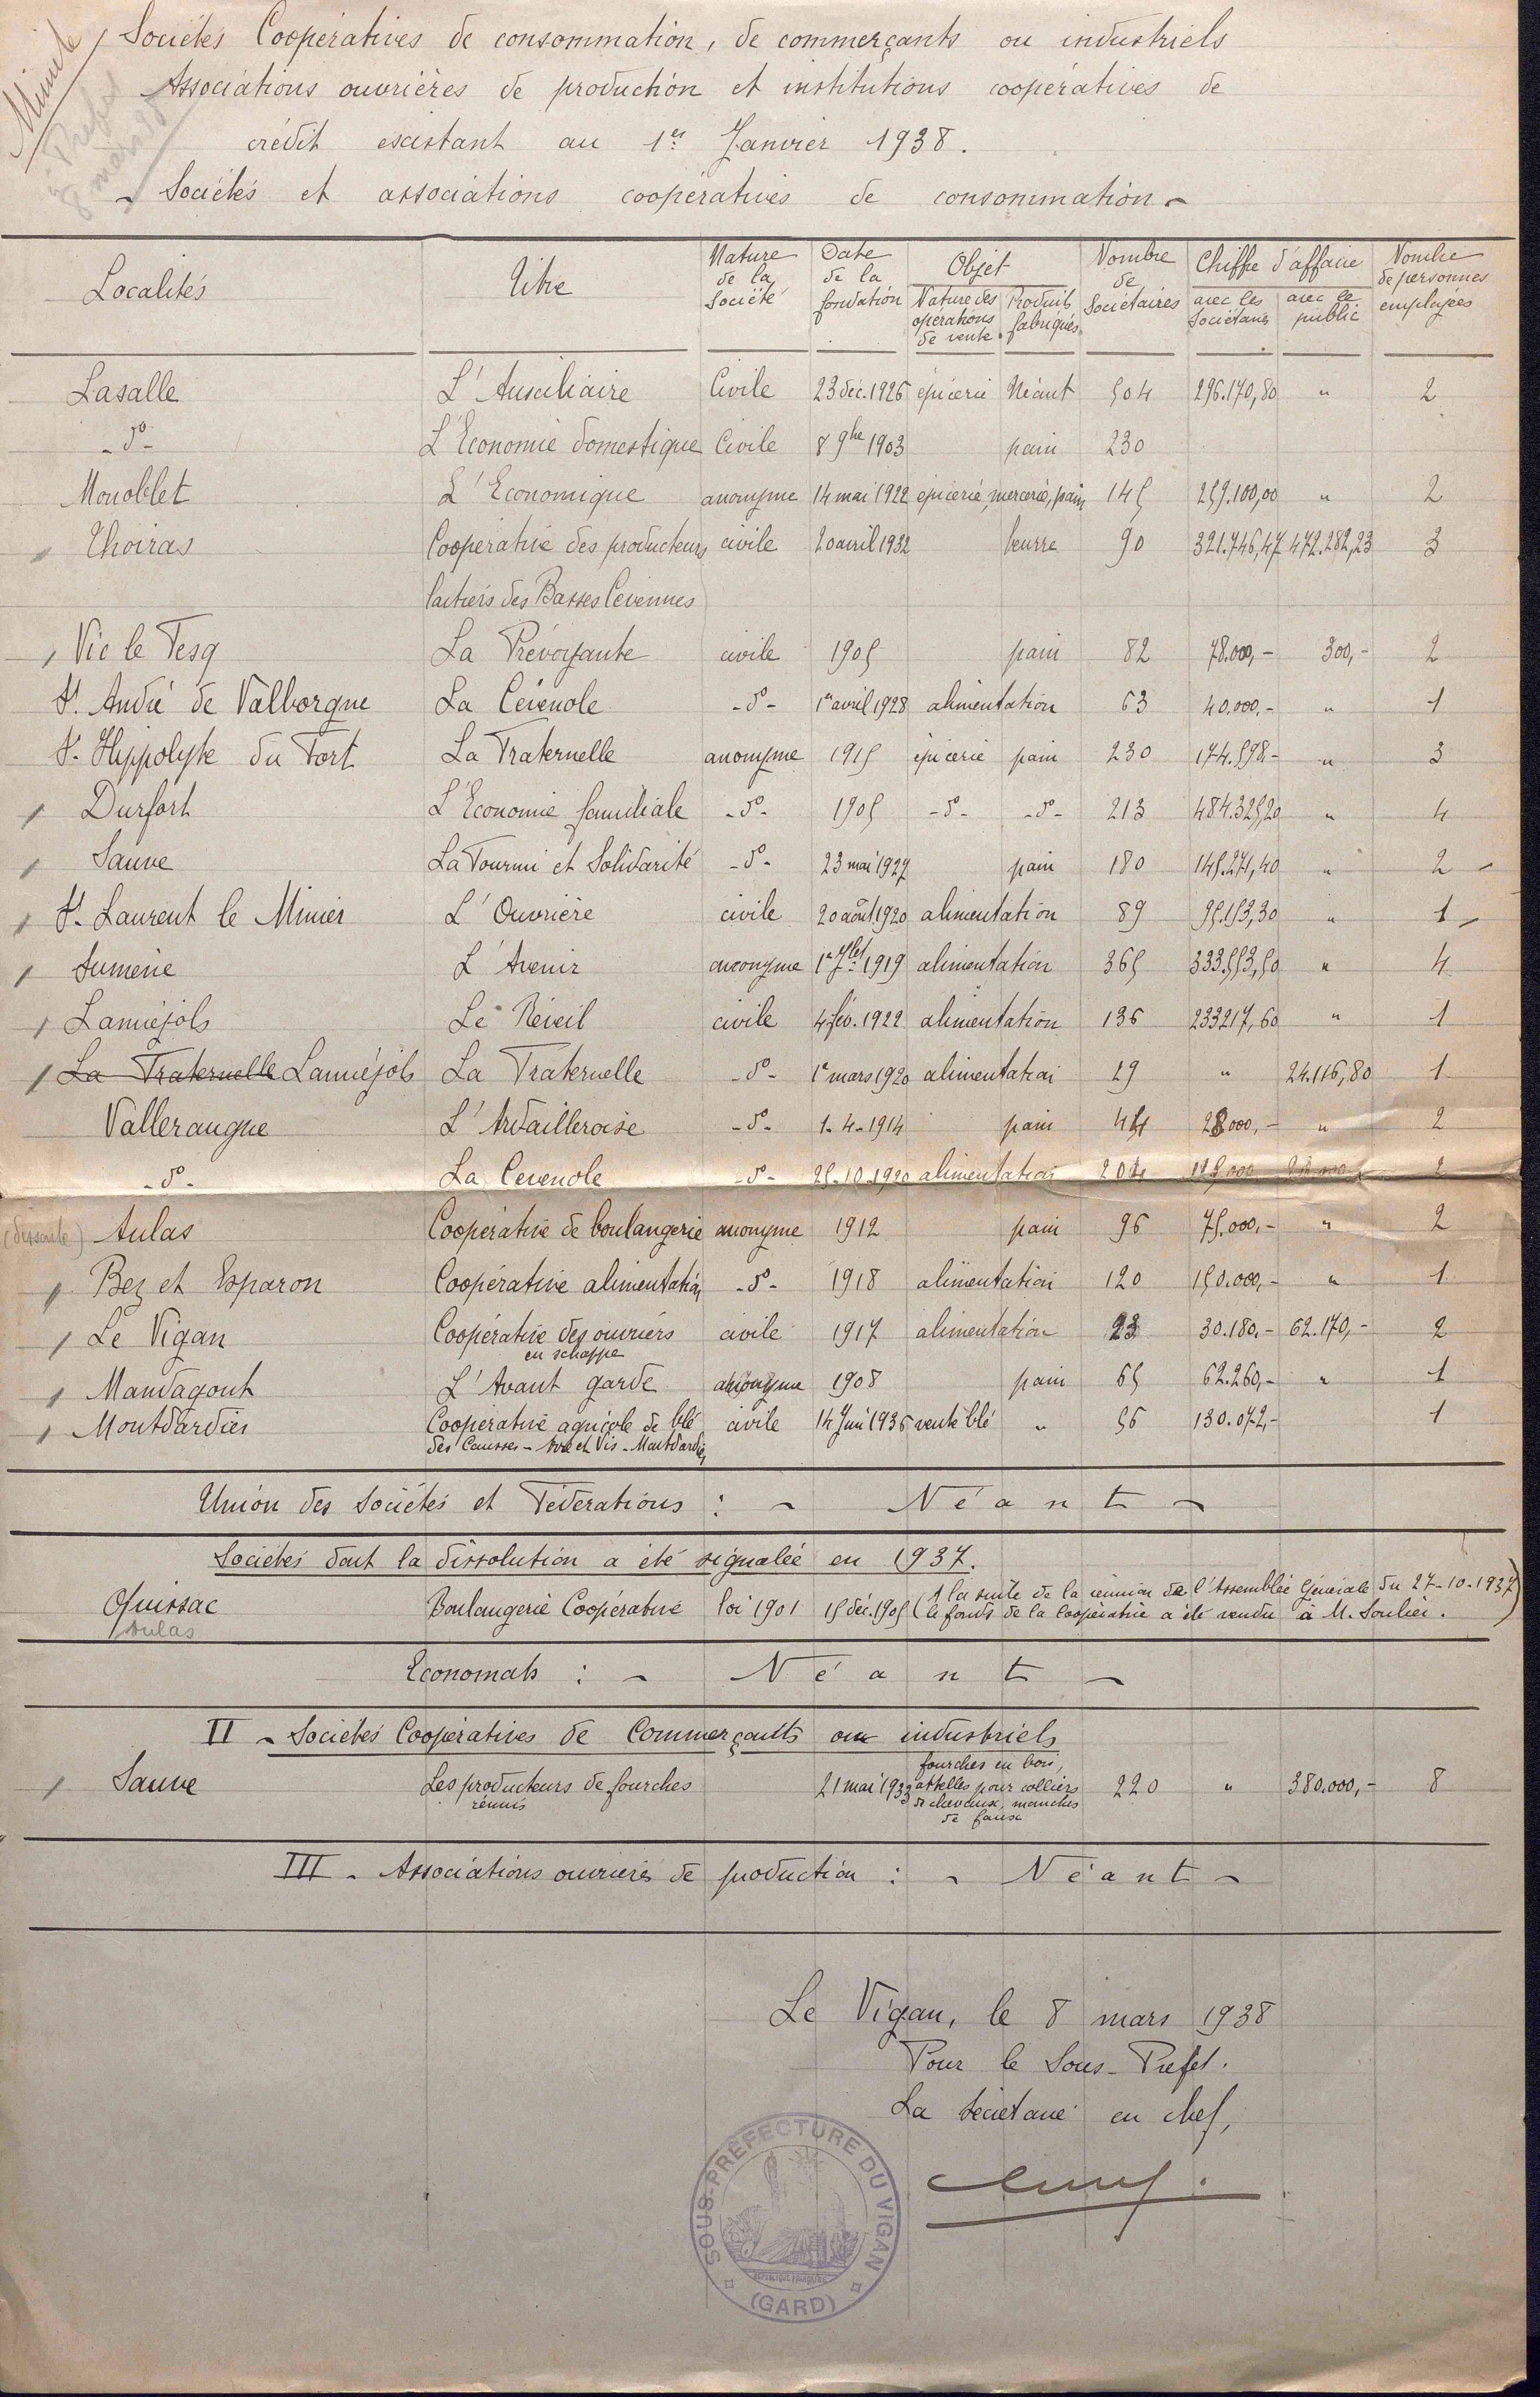 Minute
S. Préfet
8 mars 38
Sociétés Coopératives de consommation, de commerçants ou industriels
Associations ouvrières de production et institutions coopératives de
crédit existant au 1er Janvier 1938.
- Sociétés et associations coopératives de consommation -
Localités Titre Nature de la Société Date de la fondation Objet Nature des opérations de vente Produits fabriqués Nombre de Sociétaires Chiffre d'affaire avec les Sociétaires avec le public Nombre de personnes employées
Lasalle L'Auxiliaire Civile 23 déc. 1926 épicerie Néant 504 296.170,80 " 2
-do- L'Economie domestique Civile 8 9bre 1903 pain 230
Monoblet L'Economique anonyme 14 mai 1922 épicerie, mercerie, pain 145 259.100,00 " 2
Thoiras Coopérative des producteurs civile 20 avril 1932 beurre 90 321.746,47 472.282,23 3
laitiers des Basses Cévennes
Vic le Fesq La Prévoyante civile 1905 pain 82 78.000,- 300,- 2
St. André de Valborgne La Cévenole -do- 1er avril 1928 alimentation 63 40.000,- " 1
St. Hippolyte du Fort La Fraternelle anonyme 1915 épicerie pain 230 174.598,- " 3
Durfort L'Economie familiale -do- 1905 -do- -do- 213 484.325,20 " 4
Sauve La Fourmi et Solidarité -do- 23 mai 1927 pain 180 145.271,40 " 2
St. Laurent le Minier L'Ouvrière civile 20 août 1920 alimentation 89 95.153,30 " 1
Sumène L'Avenir anonyme 1er Jlet 1919 alimentation 365 333.553,50 " 4
Lanuéjols Le Réveil civile 4 fév. 1922 alimentation 136 233217,60 " 1
La Fraternelle Lanuéjols La Fraternelle -do- 1er mars 1920 alimentation 29 " 24.116,80 1
Valleraugue L'Ardailleroise -do- 1-4-1914 pain 44 28000,- " 2
-do- La Cévenole -do- 25-10-1920 alimentation 204 2
(dissoute) Aulas Coopérative de boulangerie anonyme 1912 pain 96 75.000,- " 2
Bez et Esparon Coopérative alimentation -do- 1918 alimentation 120 150.000,- " 1
Le Vigan Coopérative des ouvriers civile 1917 alimentation 23 30.180,- 62.170,- 2
en schappe
Mandagout L'Avant garde anonyme 1908 pain 65 62.260,- " 1
Montdardier Coopérative agricole de blé civile 14 Juin 1936 vente blé " 56 130.072,- 1
des Causses - Arre et Vis - Montdardier
Union des Sociétés et Fédérations : - Néant -
Sociétés dont la dissolution a été signalée en 1937.
Quissac Boulangerie Coopérative loi 1901 15 déc. 1905 (A la suite de la réunion de l'Assemblée Générale du 27-10-1937
le fonds de la Coopérative a été vendu à M. Soulier.)
Aulas
Economats : - Néant -
II - Sociétés Coopératives de Commerçants ou industriels
Sauve Les producteurs de fourches réunis 21 mai 1933 fourches en bois, attelles pour colliers de chevaux, manches de faux 220 " 380.000,- 8
III - Associations ouvrières de production : - Néant -
Le Vigan, le 8 mars 1938
Pour le Sous-Préfet.
La Secrétaire en chef,
SOUS-PRÉFECTURE DU VIGAN
RÉPUBLIQUE FRANÇAISE
(GARD)